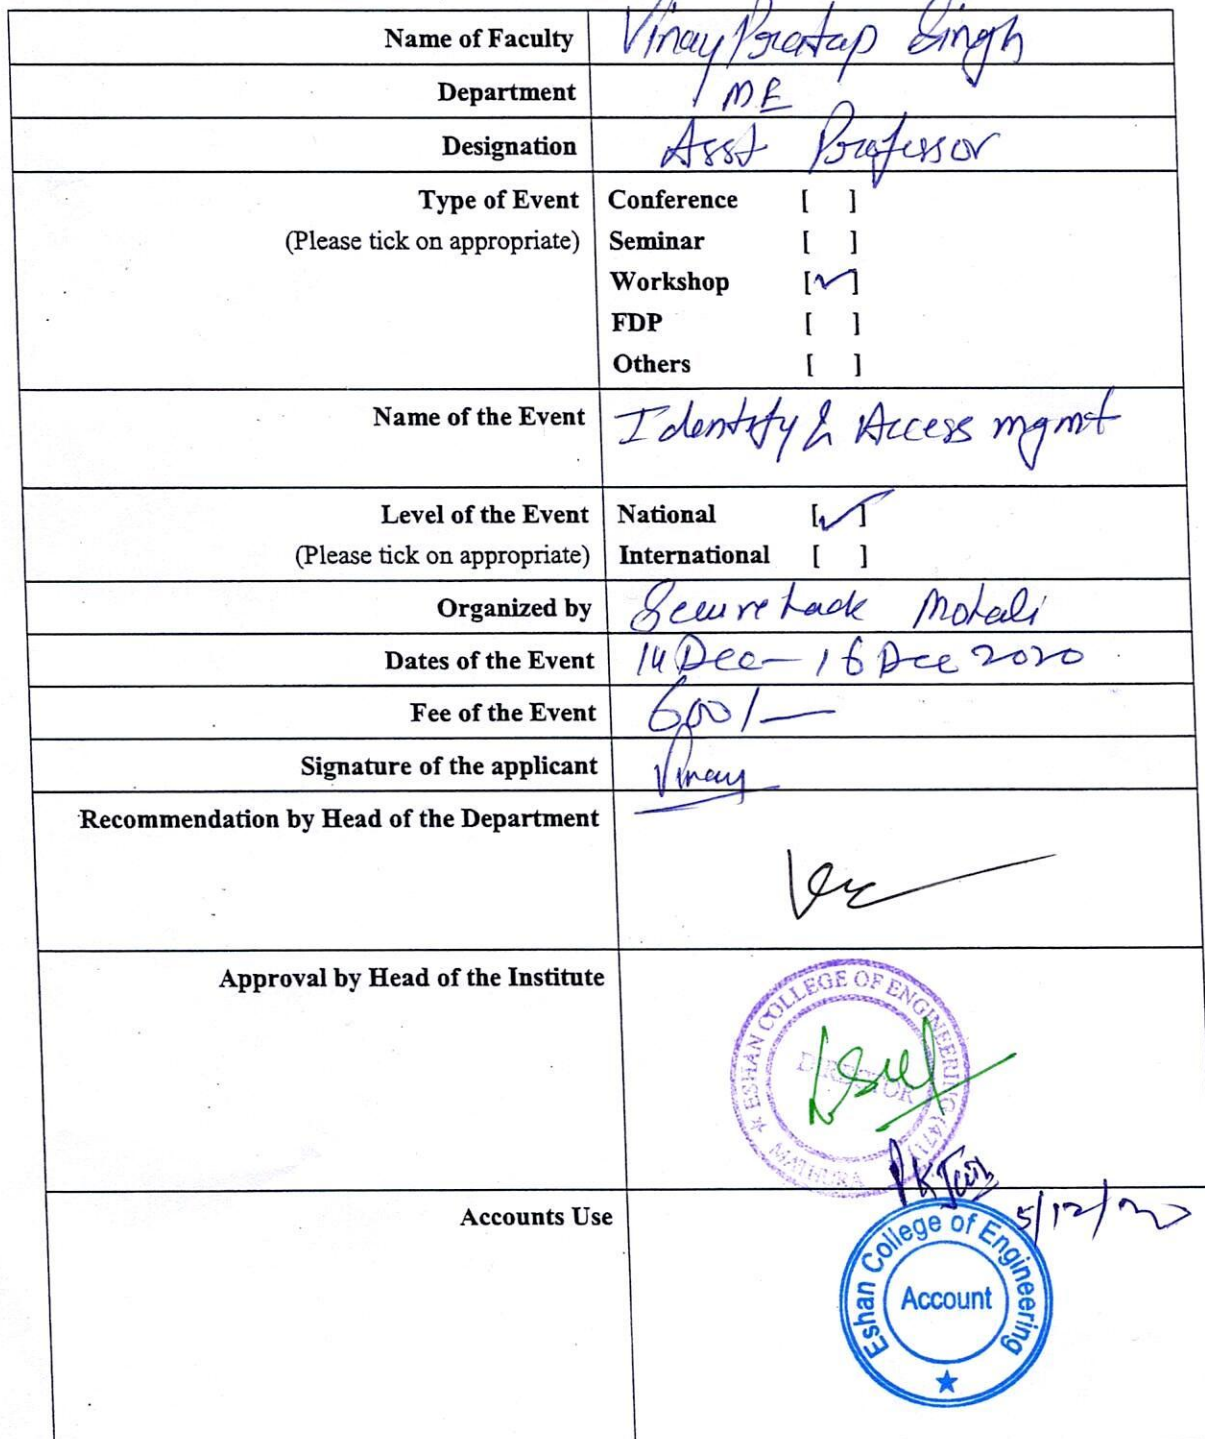 Name of Faculty Vinay Pratap Singh
Department ME
Designation Asst Professor
Type of Event Conference [ ]
(Please tick on appropriate) Seminar [ ]
Workshop [✓]
FDP [ ]
Others [ ]
Name of the Event Identity & Access mgmt
Level of the Event National [✓]
(Please tick on appropriate) International [ ]
Organized by Securehack Mohali
Dates of the Event 14 Dec - 16 Dec 2020
Fee of the Event 600/-
Signature of the applicant Vinay
Recommendation by Head of the Department
Approval by Head of the Institute
★ ESHAN COLLEGE OF ENGINEERING (471)
DIRECTOR
MATHURA
Accounts Use
5/12/20
Eshan College of Engineering
Account